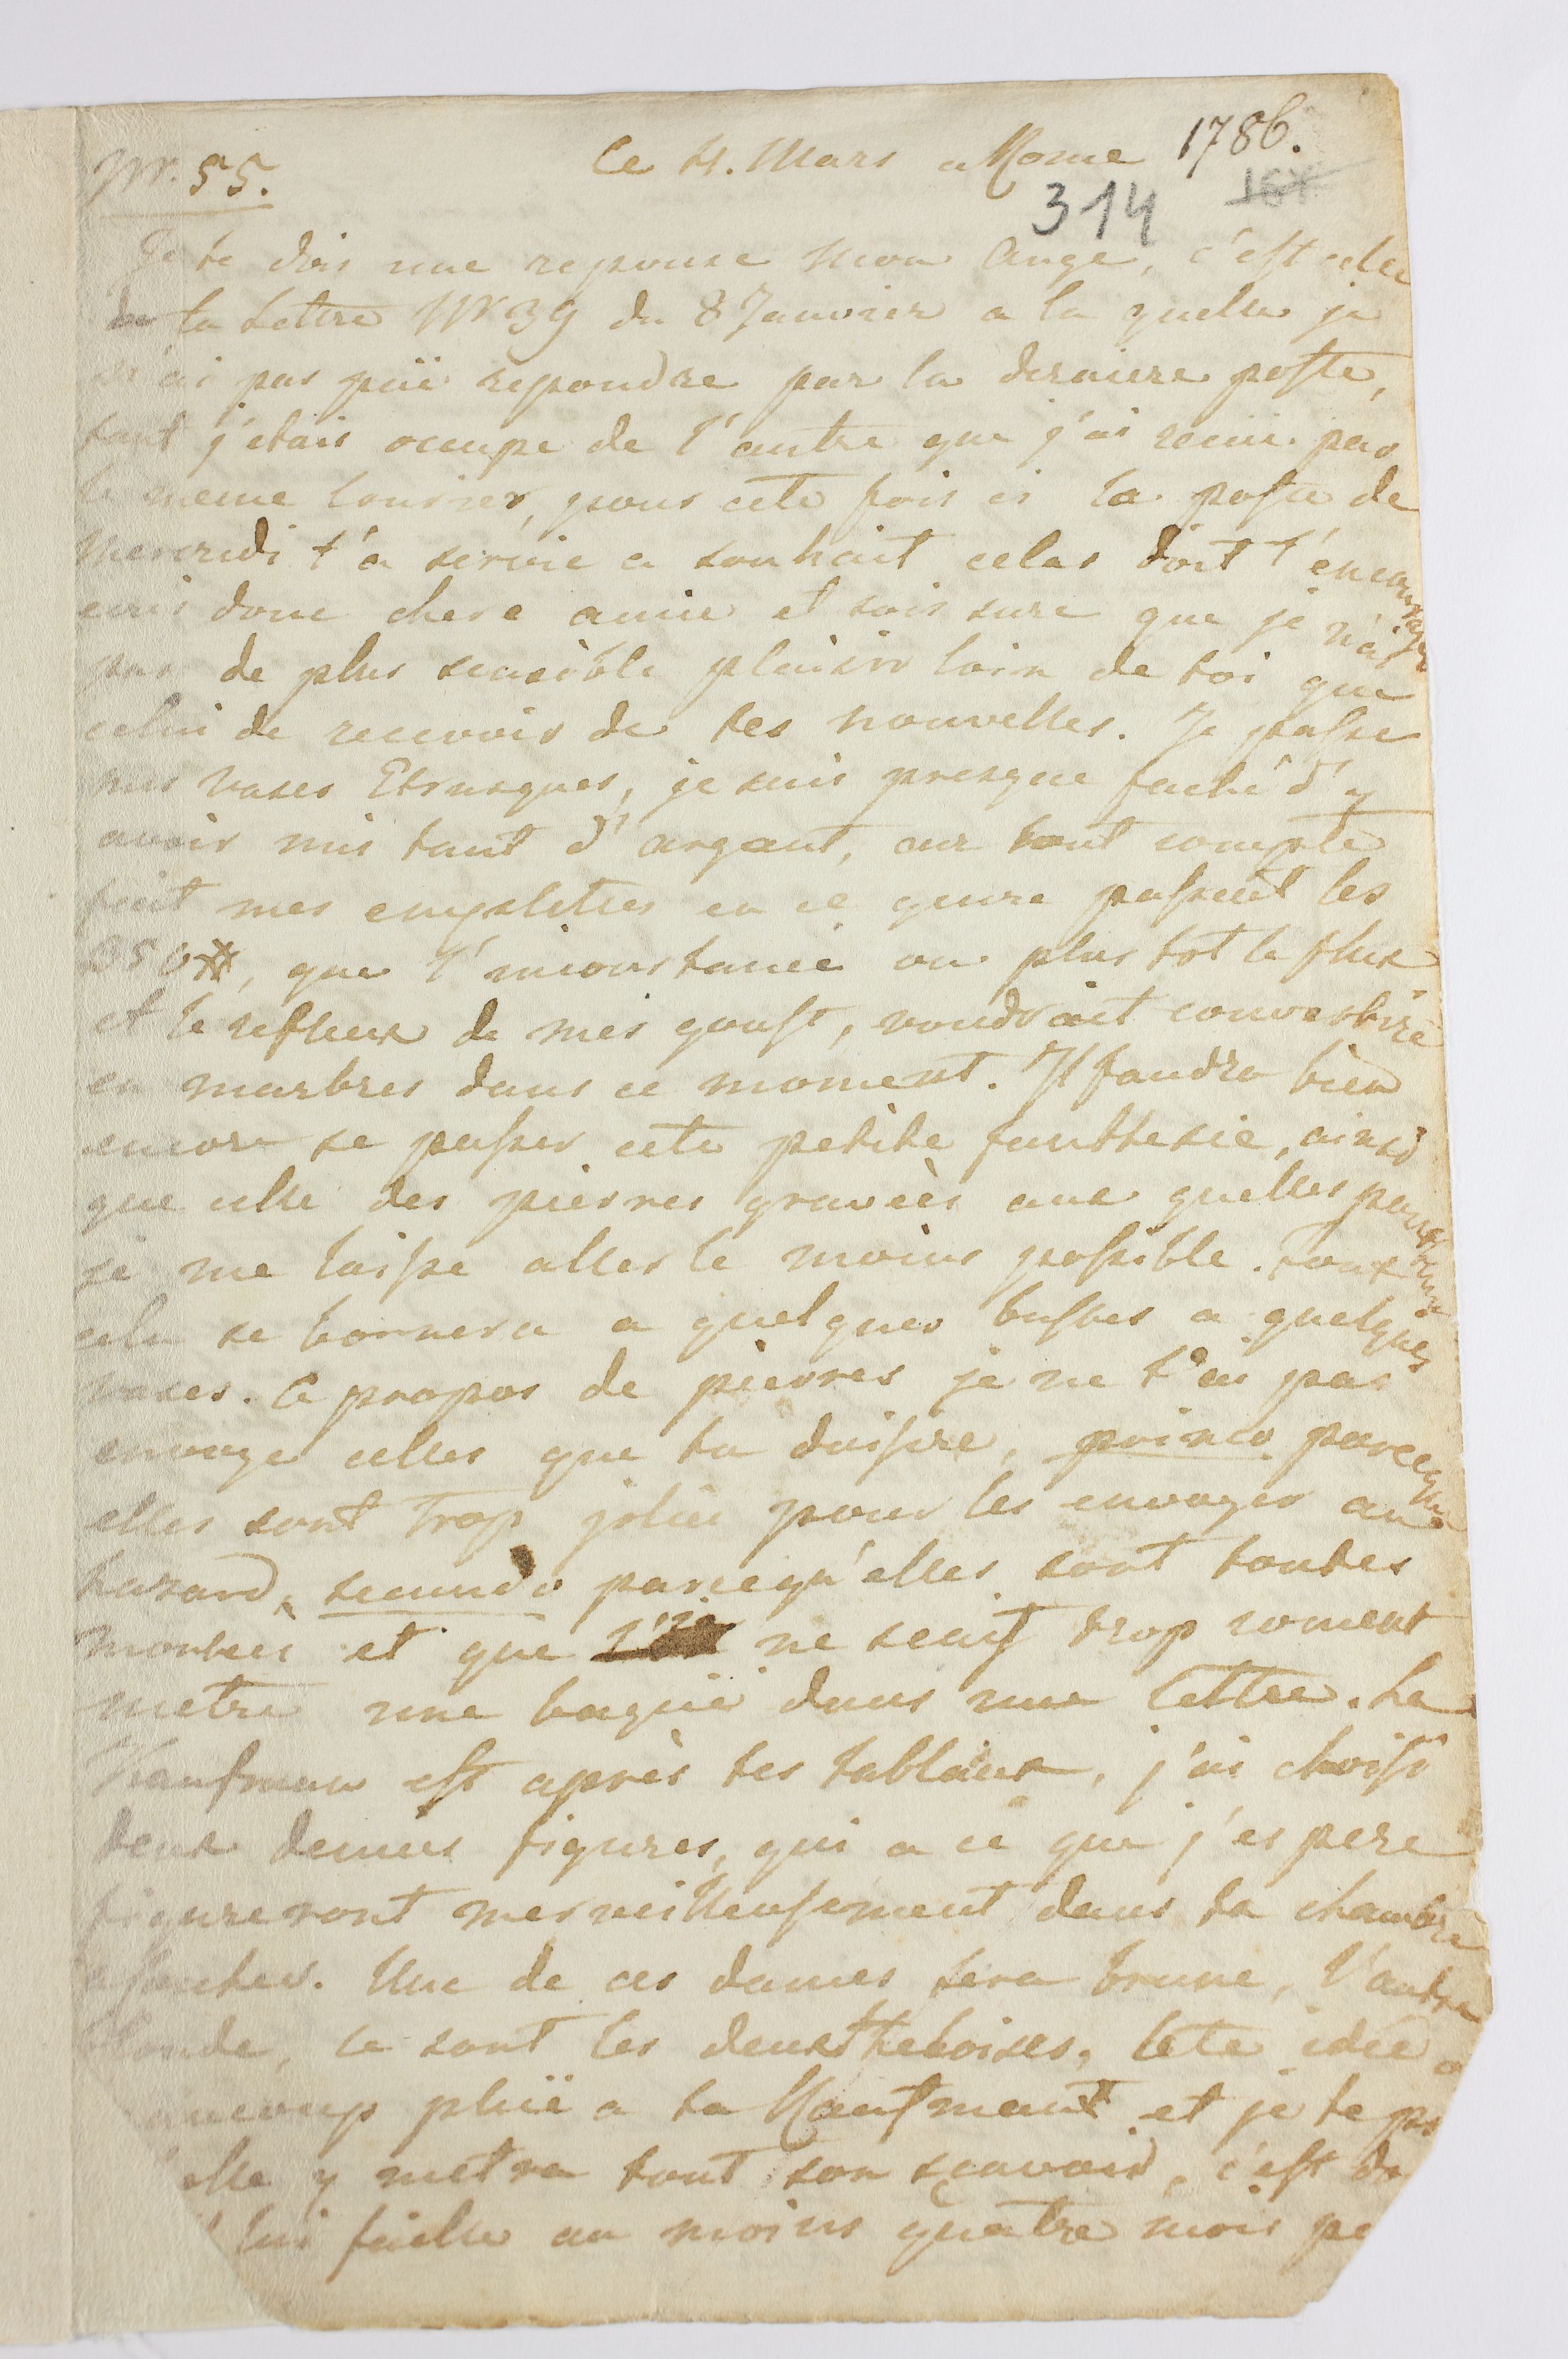 Nr. 55.
Ce 4. Mars a Rome 1786.
314
Je te dois une reponse mon Ange, c'est celle
de ta Lettre Nr 39 du 8 Janvier a la quelle je
n'ai pas püe repondre par la derniere poste,
tant j'etais occupe de l'autre que j'ai recüe par
le meme Courier, pour cete fois ci la poste de
Mercredi t'a servie a souhait celas doit t'encourager
ecris donc chere amie et sois sure que je n'ai
pas de plus sensible plaisir loin de toi que
celui de recevoir de tes nouvelles. Je passe
mes vases Etrusques, je suis presque faché d'y
avoir mis tant d'argant, car tout compte
fait mes emplettes en ce genre passent les
350 ##, que l'inconstance ou plus tot le flux
et le reflux de mes goust, voudrait convertire
en marbres dans ce moment. Il faudra bien
encore se passer cete petite fanttesie, ainsi
que celle des pierres gravées aux quelles pourtant
je me laisse aller le moins possible. Tout
cela se bornera a quelques bustes a quelques
vases. A propos de pierres je ne t'ai pas
envoye celles que tu desire, primo parceque
elles sont trop jolies pour les envoyer au
hazard, secundo parcequ'elles sont toutes
montees et que je ne scais trop coment
metre une bague dans une lettre. La
Kaufmann est après tes tableaux, j'ai choisi
deux demies figures, qui a ce que j'espere
figureront merveilleusement dans ta chambre
a coucher. Une de ces dames sera brune, l'autre
blonde, ce sont les deux Theboises, Cete idée a
beaucoup plüe a la Kaufmant et je te pr
elle y metra tout son sçavoir, c'est do
lui faille au moins quatre mois po